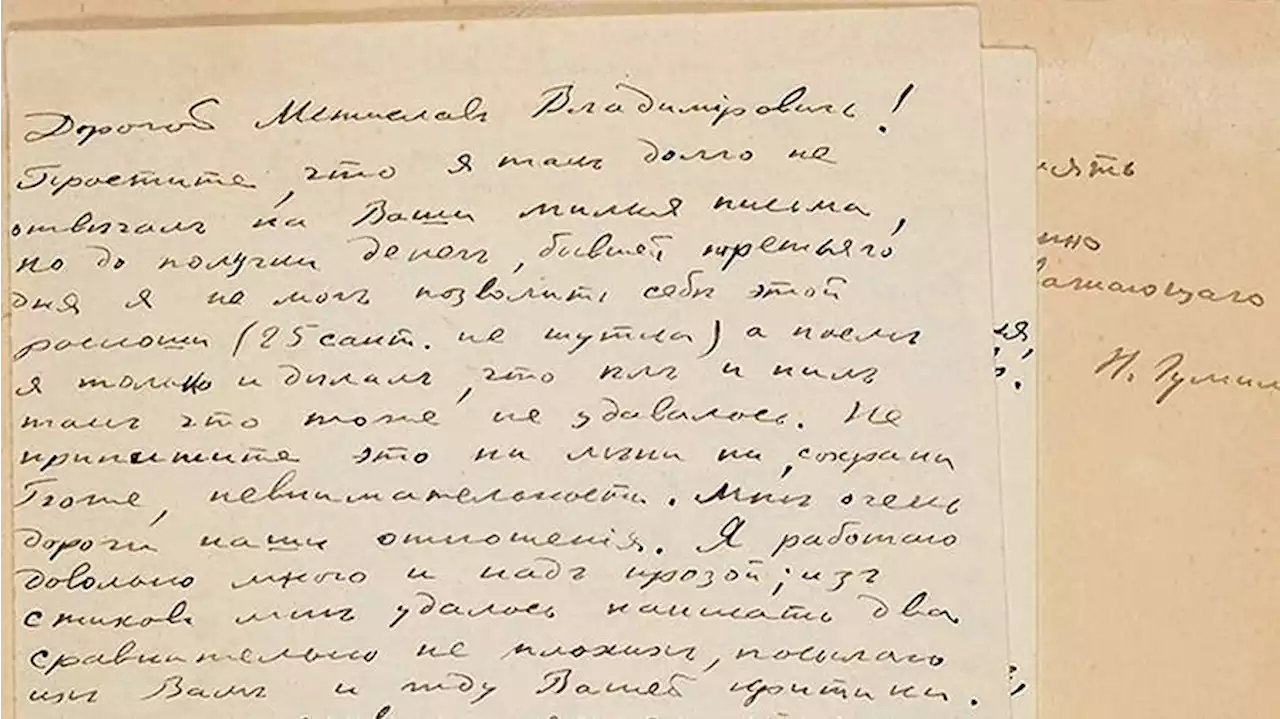 Дорогой Мстиславъ Владимировичъ!
Простите, что я такъ долго не
отвѣчалъ на Ваши милыя письма,
но до получки денегъ, бывшей третьяго
дня я не могъ позволить себѣ этой
роскоши (25 сант. не шутка) а послѣ
я только и дѣлалъ, что ѣлъ и пилъ
такъ что тоже не удавалось. Не
припишите это ни лѣни ни, сохрани
Боже, невнимательности. Мнѣ очень
дороги наши отношенія. Я работаю
довольно много и надъ прозой; изъ
стиховъ мнѣ удалось написать два
сравнительно не плохихъ, посылаю
ихъ Вамъ и жду Вашей критики.
нять
нно
важающаго
ія,
Н. Гумил